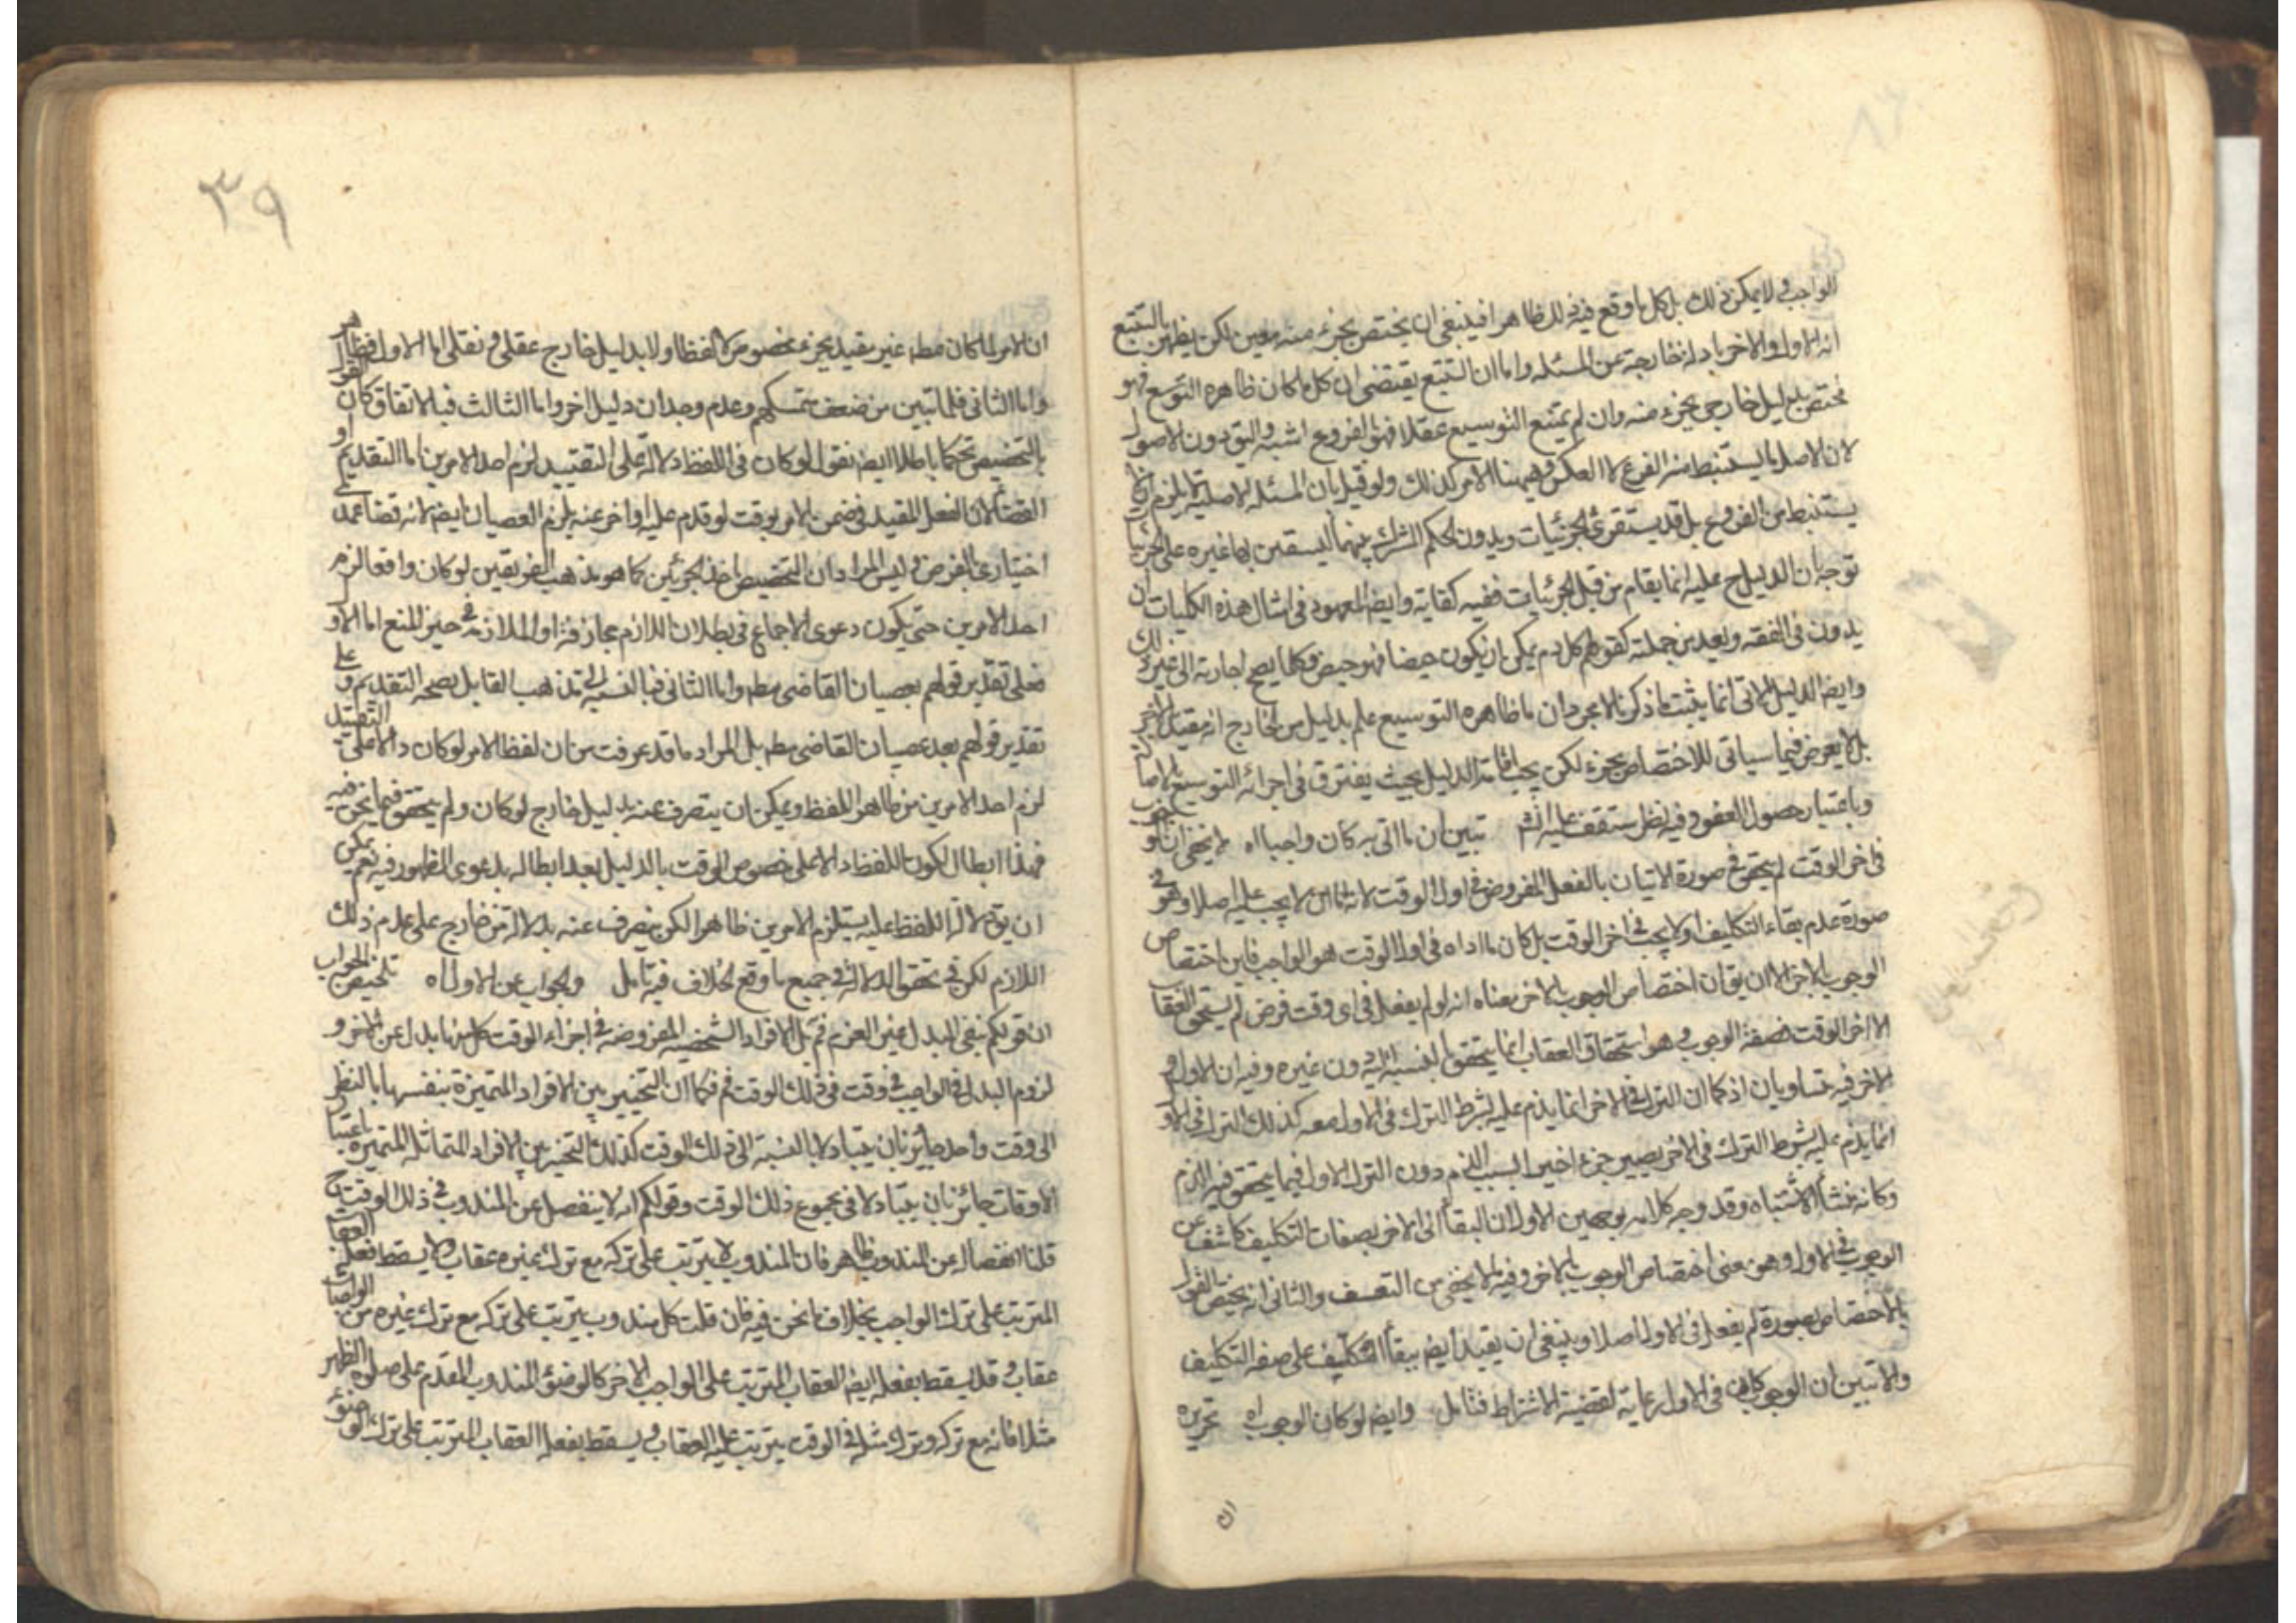 الواجب ولا يمكن ذلك بل كل ما وقع فيه ذلك ظاهرا فينبغي ان يختص بجزء منه معين لكن يظهر بالتتبع
انه الاول والاخر بادلة خارجة عن المسئله واما ان التتبع يقتضي ان كل ما كان ظاهره التوسع فهو
مختص بدليل خارجي بجزء منه وان لم يمتنع التوسيع عقلا فهو بالفروع اشبه واليق دون الاصول
لان الاصل ما يستنبط منه الفرع لا العكس وهيهنا الامر كذلك ولو قيل بان المسئله الاصلية لا يلزم ان لا
يستنبط من الفروع بل قد يستقرئ الجزئيات ويدون الحكم المشترك بينهما
توجه ان الدليل ح عليه انما يقام من قبل الجزئيات ففيه كفاية وايضا المعهود في امثال هذه الكليات ان
يدون في الفقه ويعد من جملته كقولهم كل دم يمكن ان يكون حيضا فهو حيض وكلما يصح اجارته الى غير ذلك
وايضا الدليل الاتي انما يثبت ما ذكرنا لا مجرد ان ما ظاهره التوسيع علم بدليل من الخارج انه مقيد بالاخر
بل لا يعرض فيما سياتي للاختصاص بجزء لكن يجب اقامة الدليل بحيث يفترق في اجزائه التوسيع
وباعتبار حصول العفو وفيه نظر ستقف عليه انشم تبين ان ما اتى به كان واجبا اه لا يخفى ان الوجوب
في اخر الوقت لم يتحقق في صورة الاتيان بالفعل المفروض في اول الوقت لانه اما ان لا يجب عليه اصلا وهو في
صورة عدم بقاء التكليف او لا يجب في اخر الوقت بل كان ما اداه في اول الوقت هو الواجب فاين اختصاص
الوجوب بالاخر الا ان يقال ان اختصاص الوجوب بالاخر معناه انه لو لم يفعل في اي وقت فرض لم يستحق العقاب
الا اخر الوقت فصفة الوجوب وهو استحقاق العقاب انما يتحقق بالنسبة اليه دون غيره وفيه ان الاول و
الاخر فيه متساويان اذ كما ان الترك في الاخر انما يذم عليه بشرط الترك في الاول معه كذلك الترك في الاول
انما يذم عليه بشرط الترك في الاخر يصير جزء اخيرا لسبب الذم دون الترك الاول فيما يتحقق فيه الذم
وكانه منشأ الاشتباه وقد وجه كلامه بوجهين الاول ان البقاء الى الاخر بصفات التكليف كاشف عن
الوجوب في الاول وهو معنى اختصاص الوجوب بالاخر وفيه ما لا يخفى من التعسف والثاني انه يختص القول
بالاختصاص بصورة لم يفعل في الاول اصلا وينبغي ان يقيد ايضا ببقاء المكلف على صفة التكليف
والا تبين ان الوجوب كان في الاول رعاية لقضية الاشتراط فتامل وايضا لو كان الوجوب اه تحريره
ان
٣٩
ان الامر لما كان مطه غير مقيد بجزء مخصوص لا لفظا ولا بدليل خارج عقلي ونقلي اما الاول فظاهر
واما الثاني فلما تبين من ضعف متمسكهم وعدم وجدان دليل اخر واما الثالث فبالاتفاق كان القول
بالتخصيص تحكما باطلا ايضا نقول لو كان في اللفظ دلالة على التقييد لزم احد الامرين اما التقديم او
القضاء لان الفعل المقيد في ضمن الامر بوقت لو قدم عليه او اخر عنه يلزم العصيان ايضا لانه قضاء عمد
اختياري بالفرض وليس المراد ان التخصيص باحد الجزئين كما هو مذهب الفريقين لو كان واقعا لزم
احد الامرين حتى يكون دعوى الاجماع في بطلان اللازم مجازفة او الملازمة في حيز المنع اما الاول
فعلى تقدير قولهم بعصيان القاضي مطه واما الثاني فبالنسبة الى مذهب القايل بصحة التقديم وعلى
تقدير قولهم بعدم عصيان القاضي مطه بل المراد ما قد عرفت من ان لفظ الامر لو كان دالا على التقييد
لزم احد الامرين من ظاهر اللفظ ويمكن ان يتصرف عنه بدليل خارج لو كان ولم يتحقق فيما نحن فيه
فهذا ابطال لكون اللفظ دالا على خصوص الوقت بالدليل بعد ابطاله بدعوى الظهور فيه نعم يمكن
ان يقال دلالة اللفظ عليه يستلزم الامرين ظاهرا لكن يصرف عنه بدلالة من خارج على عدم ذلك
اللازم لكن في تحقق الدلالة في جميع ما وقع الخلاف فيه تامل والجواب عن الاول اه تلخيص الجواب
ان قولكم بنفي البدل غير العزم ثم بل الافراد الشخصية المفروضه في اجزاء الوقت كل منها بدل عن الاخر و
لزوم البدل في الواجب في وقت في ذلك الوقت ثم فكما ان التخيير بين الافراد المتميزة بنفسها بالنظر
الى وقت واحد جائز بان يتبادلا بالنسبة الى ذلك الوقت كذلك التخيير بين الافراد المتماثلة المتميزة باعتبار
الاوقات جائز بان يتبادلا في مجموع ذلك الوقت وقولكم انه لا ينفصل عن المندوب في ذلك الوقت ح
قلنا انفصاله عن المندوب ظاهر فان المندوب لا يترتب على تركه مع ترك غيره عقاب ولا يسقط بفعله العقاب
المترتب على ترك الواجب بخلاف ما نحن فيه فان قلت كل مندوب يترتب على تركه مع ترك غيره من الواجبات
عقاب وقد يسقط بفعله ايضا العقاب المترتب على الواجب الاخر كالوضوء المندوب المقدم على صلوة الظهر
مثلا فانه مع تركه وترك مثله في الوقت يترتب عليه العقاب ويسقط بفعله العقاب المترتب على ترك الوضوء